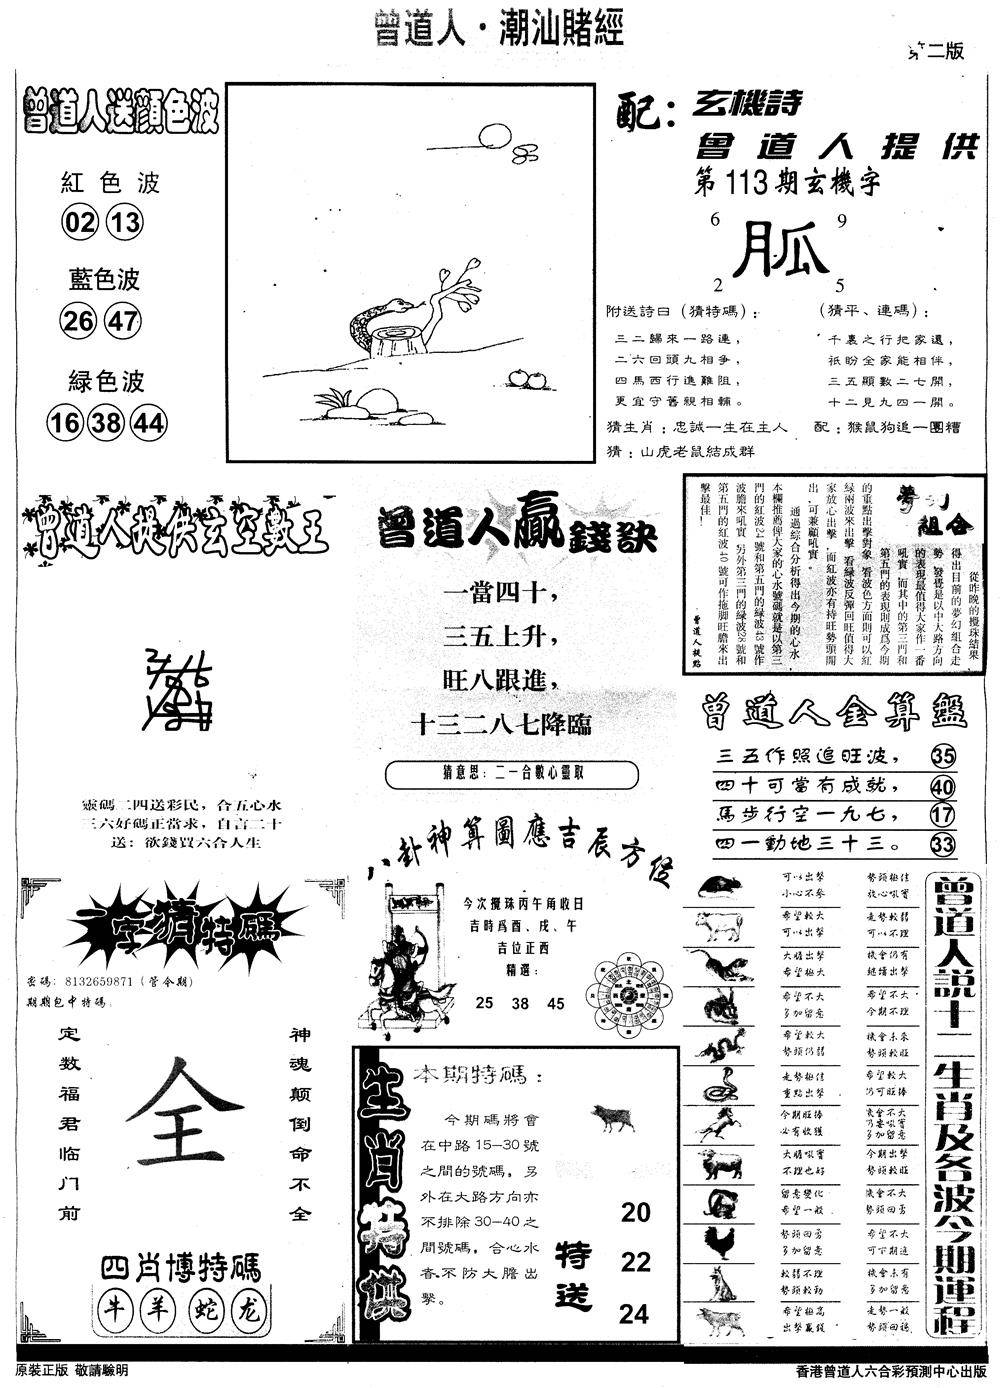 曾道人·潮汕賭經
二版
曾道人送顔色波
紅色波
02 13
藍色波
26 47
緑色波
16 38 44
配：玄機詩
曾道人提供
第113期玄機字
6 9
胍
2 5
附送詩曰（猜特碼）：
三二歸來一路連，
二六回頭九相爭，
四馬西行進難阻，
更宜守舊親相輔。
（猜平、連碼）：
千裏之行把家還，
祇盼全家能相伴，
三五顯數二七開，
十二見九四一開。
猜生肖：忠誠一生在主人
配：猴鼠狗追一團糟
猜：山虎老鼠結成群
曾道人提供玄空數王
靈碼二四送彩民，合五心水
三六好碼正當求，自言二十
送：欲錢買六合人生
曾道人贏錢訣
一當四十，
三五上升，
旺八跟進，
十三二八七降臨
猜意思：二一合數心靈取
夢幻組合
從昨晚的攪珠結果
得出目前的夢幻組合走
勢，發覺是以中大路方向
的表現最值得大家作一番
吼實，而其中的第三門和
第五門的表現則成爲今期
的重點出擊對象，看波色方面則可以紅
緑兩波來出擊，看緑波反彈回旺值得大
家放心出擊，而紅波亦有持旺勢頭開
出，可兼顧吼實。
通過綜合分析得出今期的心水，
本欄推薦俾大家的心水號碼就是以第三
門的紅波24號和第五門的緑波43號作
波膽來吼實，另外第三門的緑波28號和
第五門的紅波40號可作拖脚旺膽來出
擊最佳！
曾道人提點
曾道人金算盤
三五作照追旺波， 35
四十可當有成就， 40
馬步行空一九七， 17
四一動地三十三。 33
八卦神算圖應吉辰方位
今次攪珠丙午角收日
吉時爲酉、戌、午
吉位正西
精選：
25 38 45
一字猜特碼
密碼：8132659871（管今期）
期期包中特碼
定数福君临门前
全
神魂颠倒命不全
四肖博特碼
牛 羊 蛇 龙
生肖特供
本期特碼：
今期碼將會
在中路15—30號
之間的號碼，另
外在大路方向亦
不排除30—40之
間號碼，合心水
者不防大膽出
擊。
特送
20
22
24
曾道人説十二生肖及各波今期運程
可以出擊
小心不參
勢頭極佳
放心吼實
希望較大
可以出擊
走勢較弱
可以不理
大膽出擊
希望極大
機會仍有
繼續出擊
希望不大
多加留意
希望不大
今期不理
希望較大
勢頭仍弱
機會未來
勢頭較旺
走勢極佳
重點出擊
希望較大
仍可旺捧
今期旺捧
必有收獲
機會不大
多加留意
大膽吼實
不理也好
今期出擊
勢頭較旺
留意變化
希望一般
機會不大
勢頭回勇
勢頭回勇
多加留意
希望不大
可下期追
較弱不理
勢頭較勁
機會未有
多加留意
希望極高
出擊贏錢
走勢一般
勢頭回穩
原裝正版 敬請驗明
香港曾道人六合彩預測中心出版